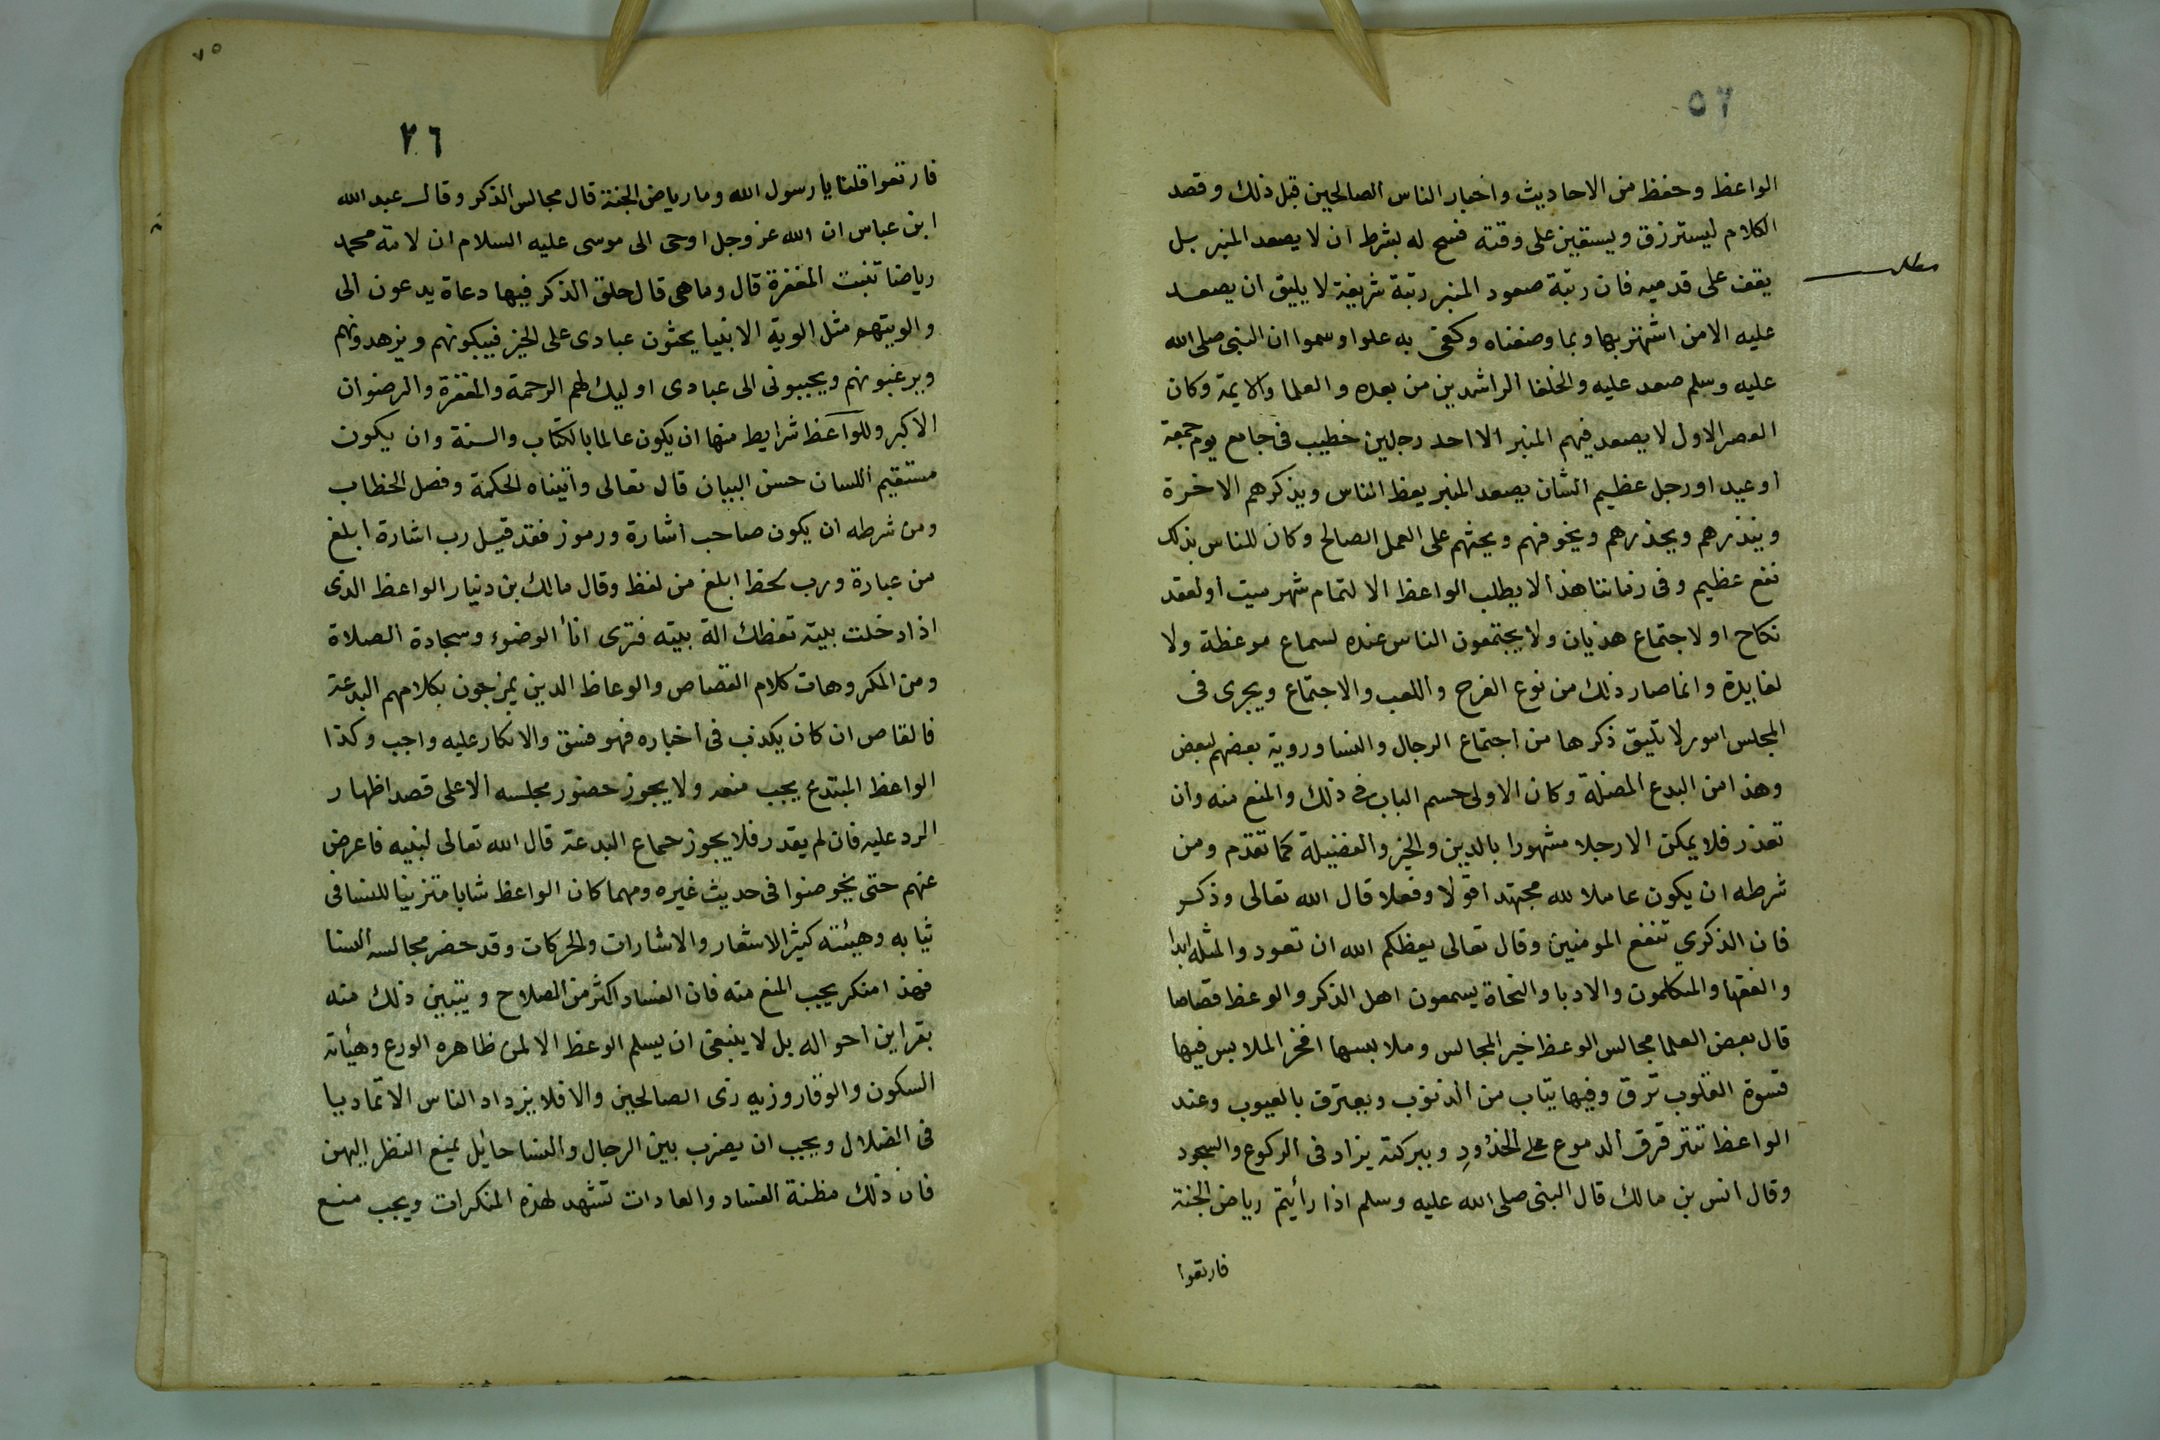 ٥٦
الواعظ وحفظ من الاحاديث واخبار الناس الصالحين قبل ذلك وقصد
الكلام ليسترزق ويستعين على وقته فسح له بشرط ان لا يصعد المنبر بل
مطلب
يقف على قدميه فان رتبة صعود المنبر رتبة شريفة لا يليق ان يصعد
عليه الا من اشتهر بها وبما وصفناه وكفى به علوا وسموا ان النبى صلى الله
عليه وسلم صعد عليه والخلفا الراشدين من بعده والعلما والايمة وكان
العصر الاول لا يصعد فيهم المنبر الا احد رجلين خطيب فى جامع يوم جمعة
او عيد او رجل عظيم الشان يصعد المنبر يعظ الناس ويذكرهم الاخرة
وينذرهم ويحذرهم ويخوفهم ويحثهم على العمل الصالح وكان للناس بذلك
نفع عظيم وفى زماننا هذا لا يطلب الواعظ الا لتمام شهر ميت او لعقد
نكاح او لاجتماع هذيان ولا يجتمعون الناس عنده لسماع موعظة ولا
لفايدة وانما صار ذلك من نوع الفرح واللعب والاجتماع ويجرى فى
المجلس امور لا تليق ذكرها من اجتماع الرجال والنسا وروية بعضهم لبعض
وهذا من البدع المضلة وكان الاولى حسم الباب فى ذلك والمنع منه وان
تعذر فلا يمكن الا رجلا مشهورا بالدين والخير والفضيلة كما تقدم ومن
شرطه ان يكون عاملا لله مجتهدا قولا وفعلا قال الله تعالى وذكر
فان الذكري تنفع المومنين وقال تعالى يعظكم الله ان تعودوا لمثله ابدا
والفقها والمتكلمون والادبا والنحاة يسمعون اهل الذكر والوعظ قصاصا
قال بعض العلما مجالس الوعظ خير المجالس وملابسها افخر الملابس فيها
قسوة القلوب ترق وفيها يتاب من الذنوب ويعترف بالعيوب وعند
الواعظ تترقرق الدموع على الخدود وببركته يزاد فى الركوع والسجود
وقال انس بن مالك قال النبى صلى الله عليه وسلم اذا رأيتم رياض الجنة
فارتعوا
٧٥
٢٦
فارتعوا قلنا يا رسول الله وما رياض الجنة قال مجالس الذكر وقال عبد الله
ابن عباس ان الله عز وجل اوحى الى موسى عليه السلام ان لامة محمد
رياضا تنبت المغفرة قال وما هى قال حلق الذكر فيها دعاة يدعون الى
والويتهم مثل الوية الانبيا يحثون عبادى على الخير فيبكونهم ويزهدونهم
ويرغبونهم ويحببونى الى عبادى اوليك لهم الرحمة والمغفرة والرضوان
الاكبر وللواعظ شرايط منها ان يكون عالما بالكتاب والسنة وان يكون
مستقيم اللسان حسن البيان قال تعالى وآتيناه الحكمة وفصل الخطاب
ومن شرطه ان يكون صاحب اشارة ورموز فقد قيل رب اشارة ابلغ
من عبارة ورب لحظ ابلغ من لفظ وقال مالك بن دنيار الواعظ الذى
اذا دخلت بيته تعظك الة بيته فترى انأ الوضوء وسجادة الصلاة
ومن المكروهات كلام القصاص والوعاظ الدين يمزجون بكلامهم البدعة
فالقاص ان كان يكذب فى اخباره فهو فسق والانكار عليه واجب وكذا
الواعظ المبتدع يجب منعه ولا يجوز حضور مجلسه الا على قصد اظهار
الرد عليه فان لم يقدر فلا يجوز سماع البدعة قال الله تعالى لنبيه فاعرض
عنهم حتى يخوضوا فى حديث غيره ومهما كان الواعظ شابا متزينا للنسا فى
ثيابه وهيئته كثير الاشعار والاشارات والحركات وقد حضر مجالسه النسا
فهذا منكر يجب المنع منه فان الفساد اكثر من الصلاح ويتبين ذلك منه
بقراين احواله بل لا ينبغى ان يسلم الوعظ الا لمن ظاهره الورع وهيأته
السكون والوقار وزيه زى الصالحين والا فلا يزداد الناس الا تماديا
فى الضلال ويجب ان يضرب بين الرجال والنسا حائيل يمنع النظر اليهن
فان ذلك مظنة الفساد والعادات تشهد لهذه المنكرات ويجب منع